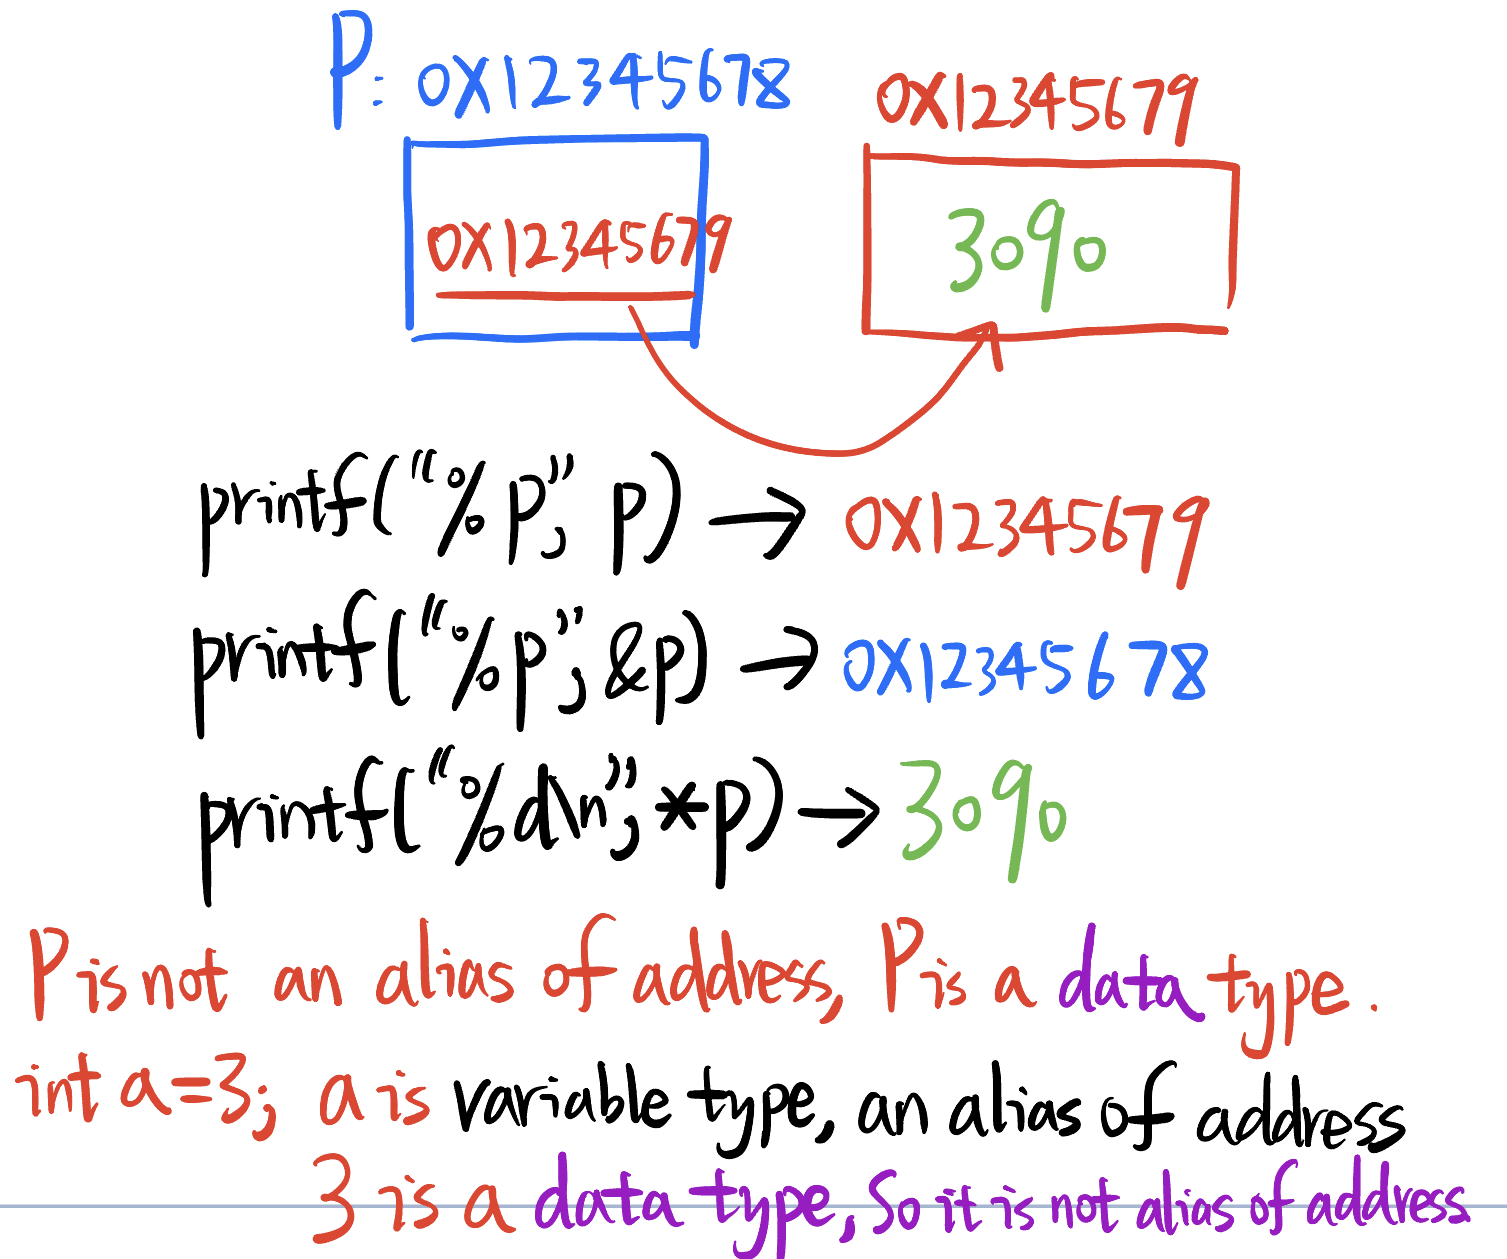 P: 0X12345678
0X12345679
0X12345679
3090
printf("%p", p) → 0X12345679
printf("%p", &p) → 0X12345678
printf("%d\n", *p) → 3090
P is not an alias of address, P is a data type.
int a=3; a is variable type, an alias of address
3 is a data type, So it is not alias of address